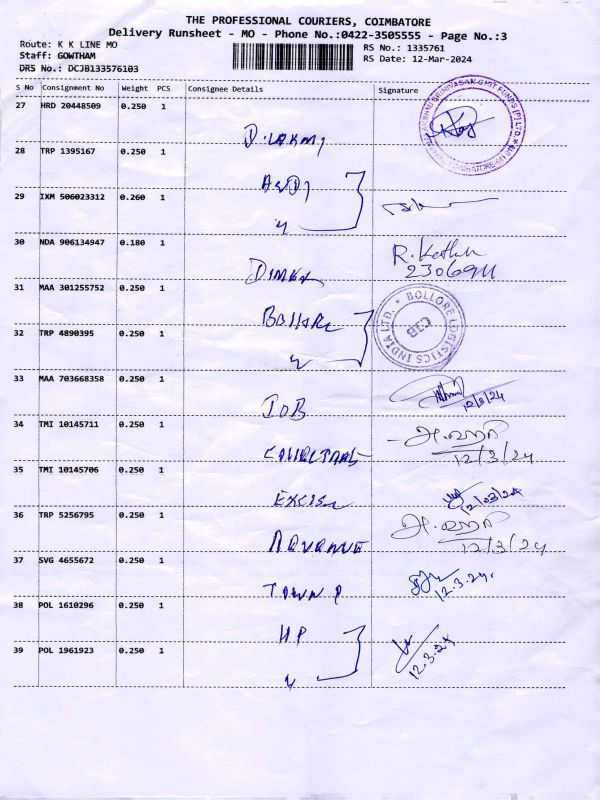 THE PROFESSIONAL COURIERS, COIMBATORE
Delivery Runsheet - MO - Phone No.:0422-3505555 - Page No.:3
Route: K K LINE MO
RS No.: 1335761
Staff: GOWTHAM
RS Date: 12-Mar-2024
DRS No.: DCJB133576103
S No Consignment No Weight PCS Consignee Details Signature
27 HRD 20448509 0.250 1
28 TRP 1395167 0.250 1
29 IXM 506023312 0.260 1
30 NDA 906134947 0.180 1
R. Kathir
23069811
31 MAA 301255752 0.250 1
BOLLORE LOGISTICS INDIA LTD.
CJB
32 TRP 4890395 0.250 1
33 MAA 703668358 0.250 1
IOB
12/3/24
34 TMI 10145711 0.250 1
12/3/24
35 TMI 10145706 0.250 1
Excise
12/03/24
36 TRP 5256795 0.250 1
12/3/24
37 SVG 4655672 0.250 1
TOWN P
12.3.24.
38 POL 1610296 0.250 1
HP
12.3.24
39 POL 1961923 0.250 1